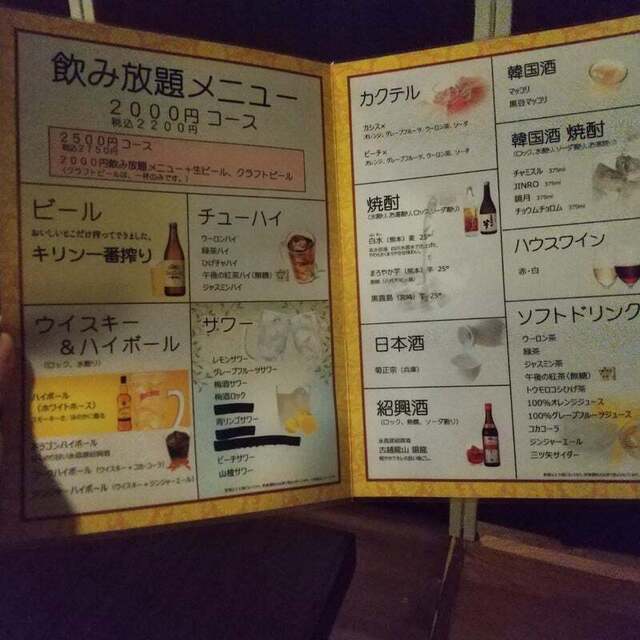 飲み放題メニュー
2000円 コース
税込2200円
2500円 コース
税込2750円
2000円飲み放題メニュー+生ビール、クラフトビール
(クラフトビールは、一杯のみです。)
ビール
おいしいとこだけ搾ってできました。
キリン一番搾り
チューハイ
ウーロンハイ
緑茶ハイ
ひげ茶ハイ
午後の紅茶ハイ(無糖)
ジャスミンハイ
ウイスキー
&ハイボール
(ロック、水割り)
ハイボール
(ホワイトホース)
ドラゴンハイボール
ハイボール (ウイスキー+コカ・コーラ)
ハイボール (ウイスキー+ジンジャーエール)
サワー
レモンサワー
グレープフルーツサワー
梅酒サワー
梅酒ロック
青リンゴサワー
ピーチサワー
山楂サワー
カクテル
カシス×
オレンジ、グレープフルーツ、ウーロン茶、ソーダ
ピーチ×
オレンジ、グレープフルーツ、ウーロン茶、ソーダ
焼酎
(水割り、お湯割り、ロック、ソーダ割り)
白水 (熊本) 麦 25°
まろやか芋 (熊本) 芋 25°
黒霧島 (宮崎) 芋 25°
日本酒
菊正宗 (兵庫)
紹興酒
(ロック、熱燗、ソーダ割り)
永昌源紹興酒
古越龍山 銀龍
韓国酒
マッコリ
黒豆マッコリ
韓国酒 焼酎
(ロック、水割り、ソーダ割り、お湯割り)
チャミスル 375ml
JINRO 375ml
鏡月 375ml
チョウムチョロム 375ml
ハウスワイン
赤・白
ソフトドリンク
ウーロン茶
緑茶
ジャスミン茶
午後の紅茶(無糖)
トウモロコシひげ茶
100%オレンジジュース
100%グレープフルーツジュース
コカコーラ
ジンジャーエール
三ツ矢サイダー